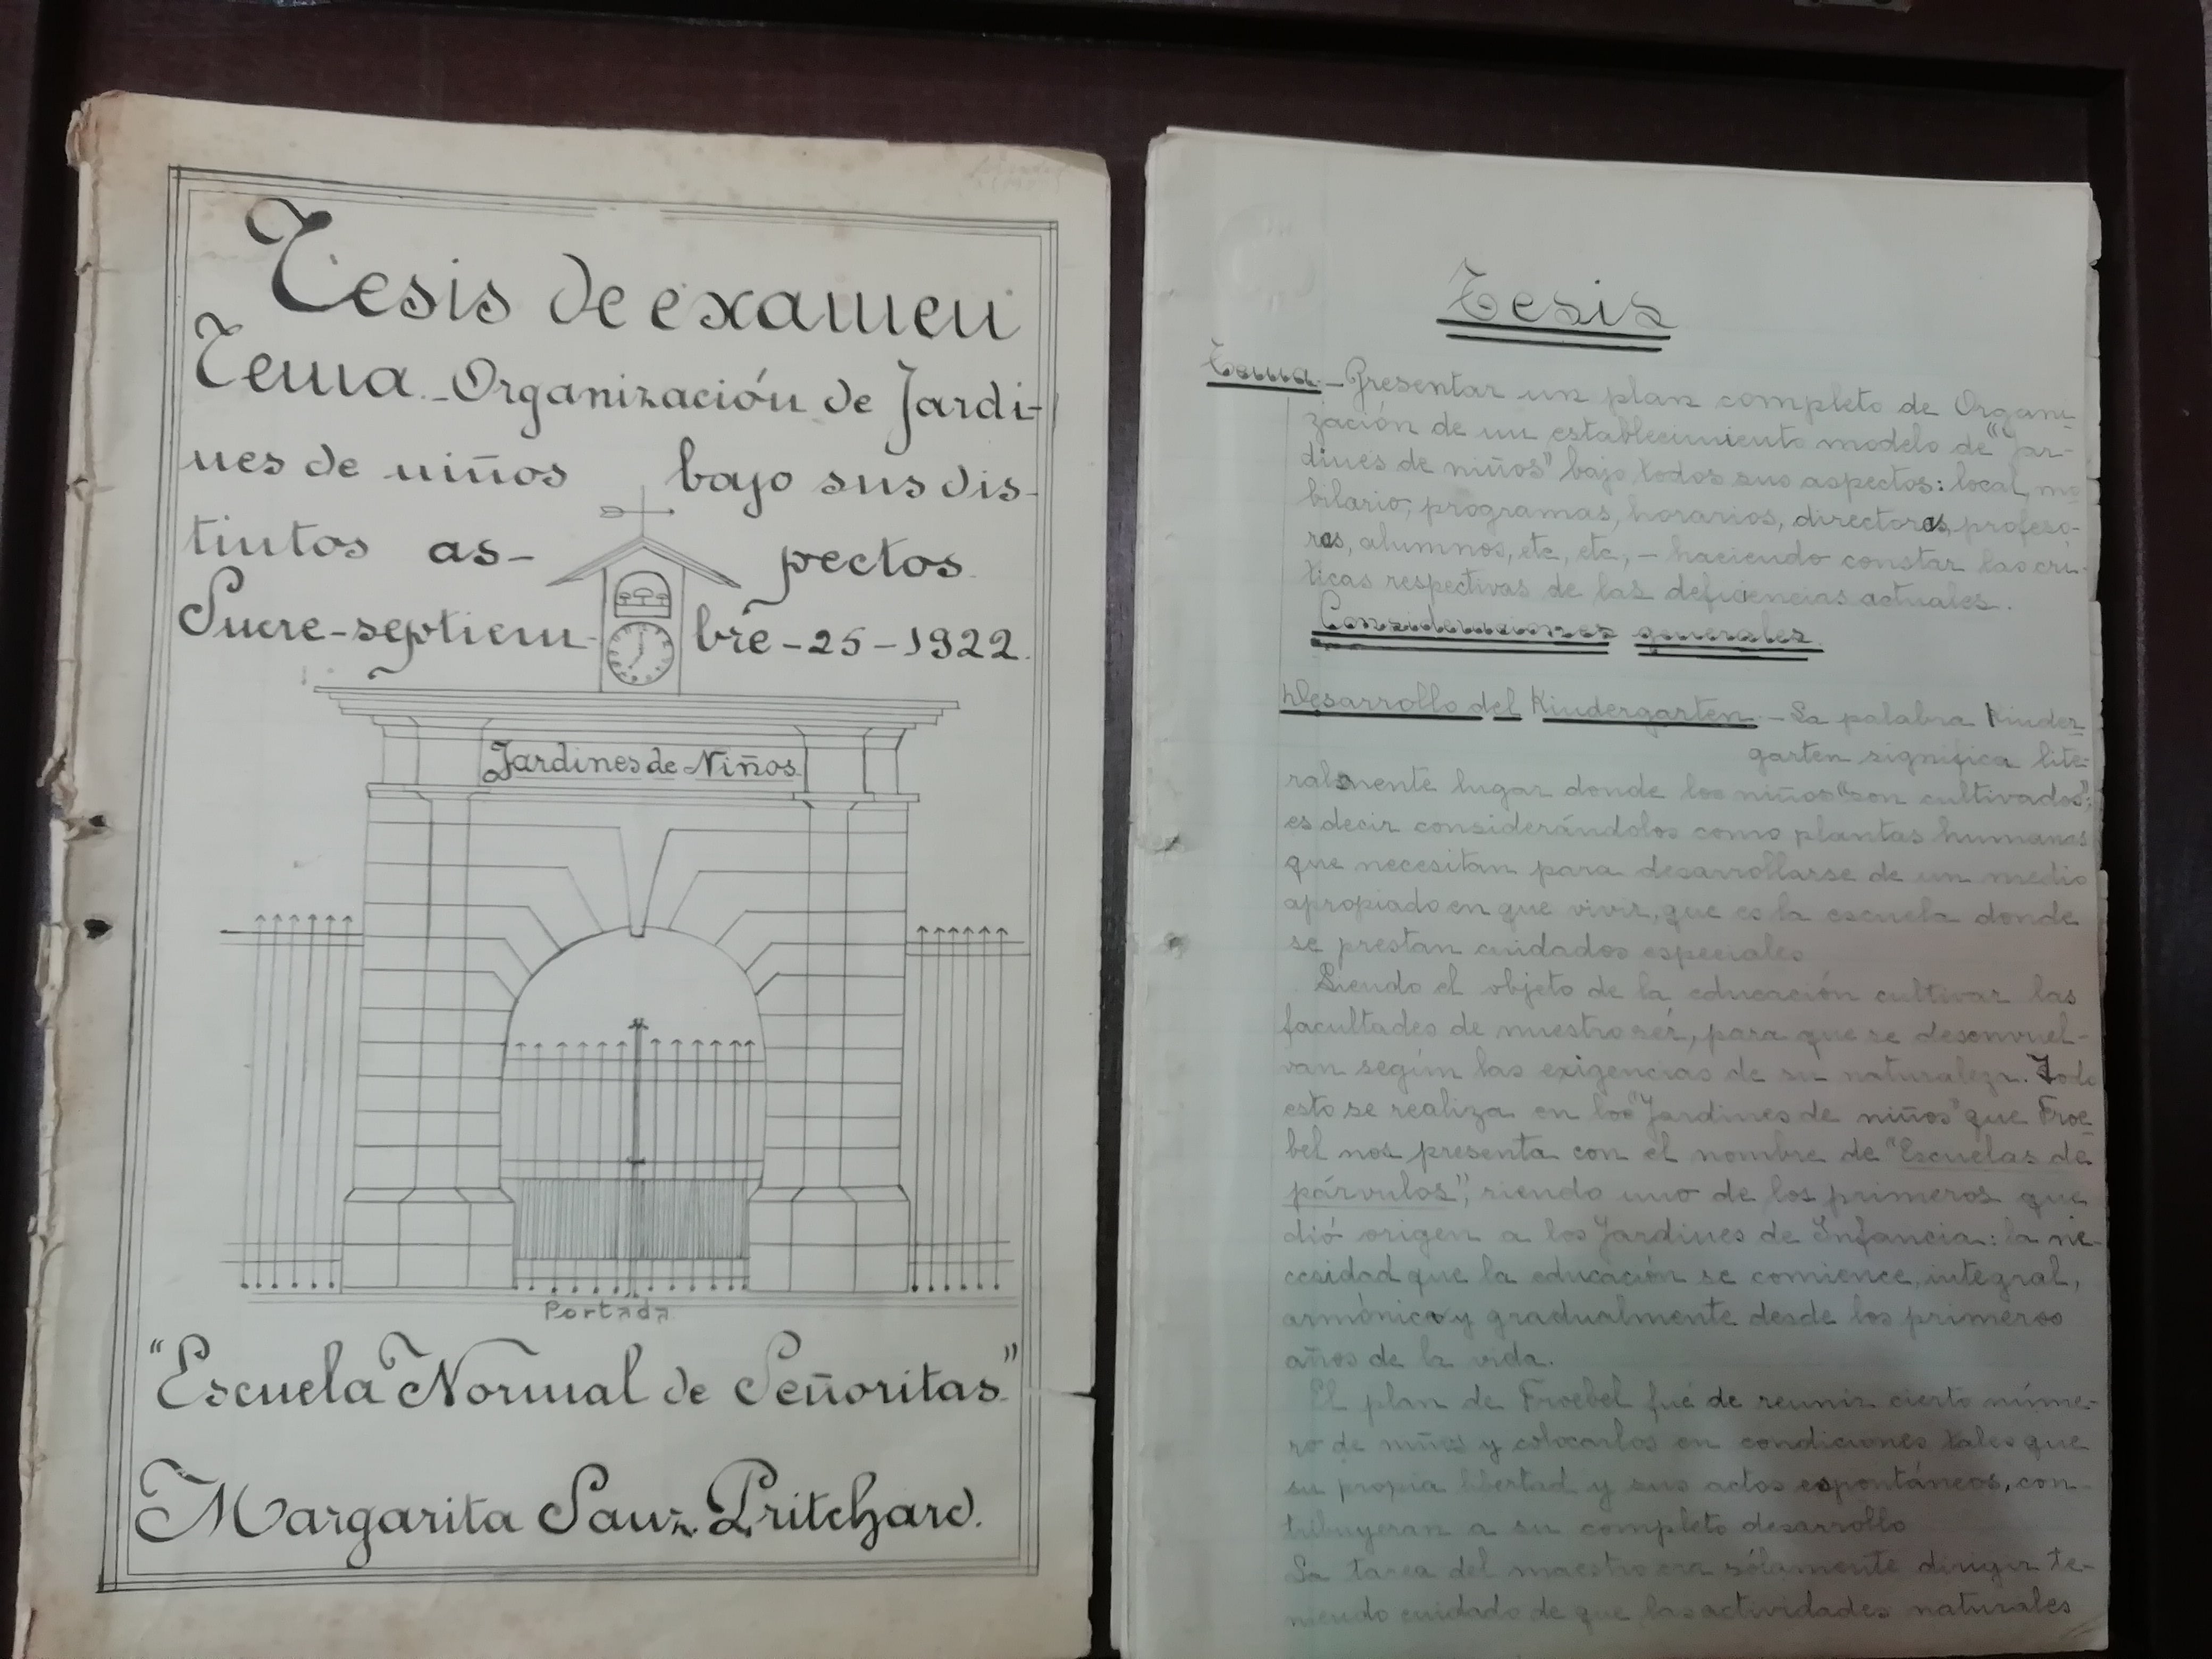 Tesis de examen
Tema.-Organización de Jardi-
nes de niños bajo sus dis-
tintos as- pectos.
Sucre-septiem- bre-25-1922.
Jardines de Niños
Portada
"Escuela Normal de Señoritas"
Margarita Sanz. Pritchard.
Tesis
Tema.-Presentar un plan completo de Organi-
zación de un establecimiento modelo de "Jar-
dines de niños" bajo todos sus aspectos: local, mo-
bilario, programas, horarios, directoras, profeso-
ras, alumnos, etc, etc,- haciendo constar las crí-
ticas respectivas de las deficiencias actuales.
Consideraciones generales.
Desarrollo del Kindergarten.-La palabra Kinder
garten significa lite-
ralmente lugar donde los niños "son cultivados";
es decir considerándolos como plantas humanas
que necesitan para desarrollarse de un medio
apropiado en que vivir, que es la escuela donde
se prestan cuidados especiales
Siendo el objeto de la educación cultivar las
facultades de nuestro sér, para que se desenvuel-
van según las exigencias de su naturaleza. Todo
esto se realiza en los "Jardines de niños" que Froe-
bel nos presenta con el nombre de "Escuelas de
párvulos", siendo uno de los primeros que
dió origen a los Jardines de Infancia: la ne-
cesidad que la educación se comience, integral,
armónica y gradualmente desde los primeros
años de la vida.
El plan de Froebel fué de reunir cierto núme-
ro de niños y colocarlos en condiciones tales que
su propia libertad y sus actos espontáneos, con-
tribuyeran a su completo desarrollo
La tarea del maestro era sólamente dirigir te-
niendo cuidado de que las actividades naturales